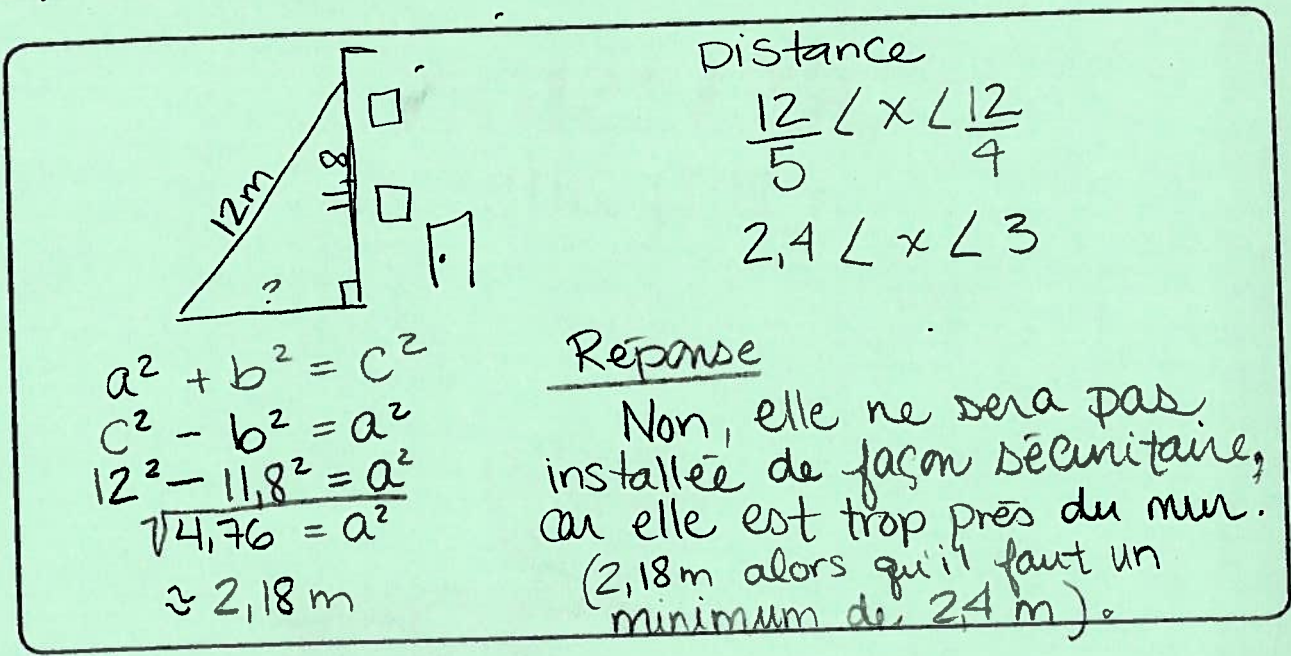 12m
11,8
?
a² + b² = c²
c² - b² = a²
12² - 11,8² = a²
√4,76 = a²
≈ 2,18 m
Distance
12/5 < x < 12/4
2,4 < x < 3
Réponse
Non, elle ne sera pas
installée de façon sécuritaire,
car elle est trop près du mur.
(2,18m alors qu'il faut un
minimum de 2,4 m).